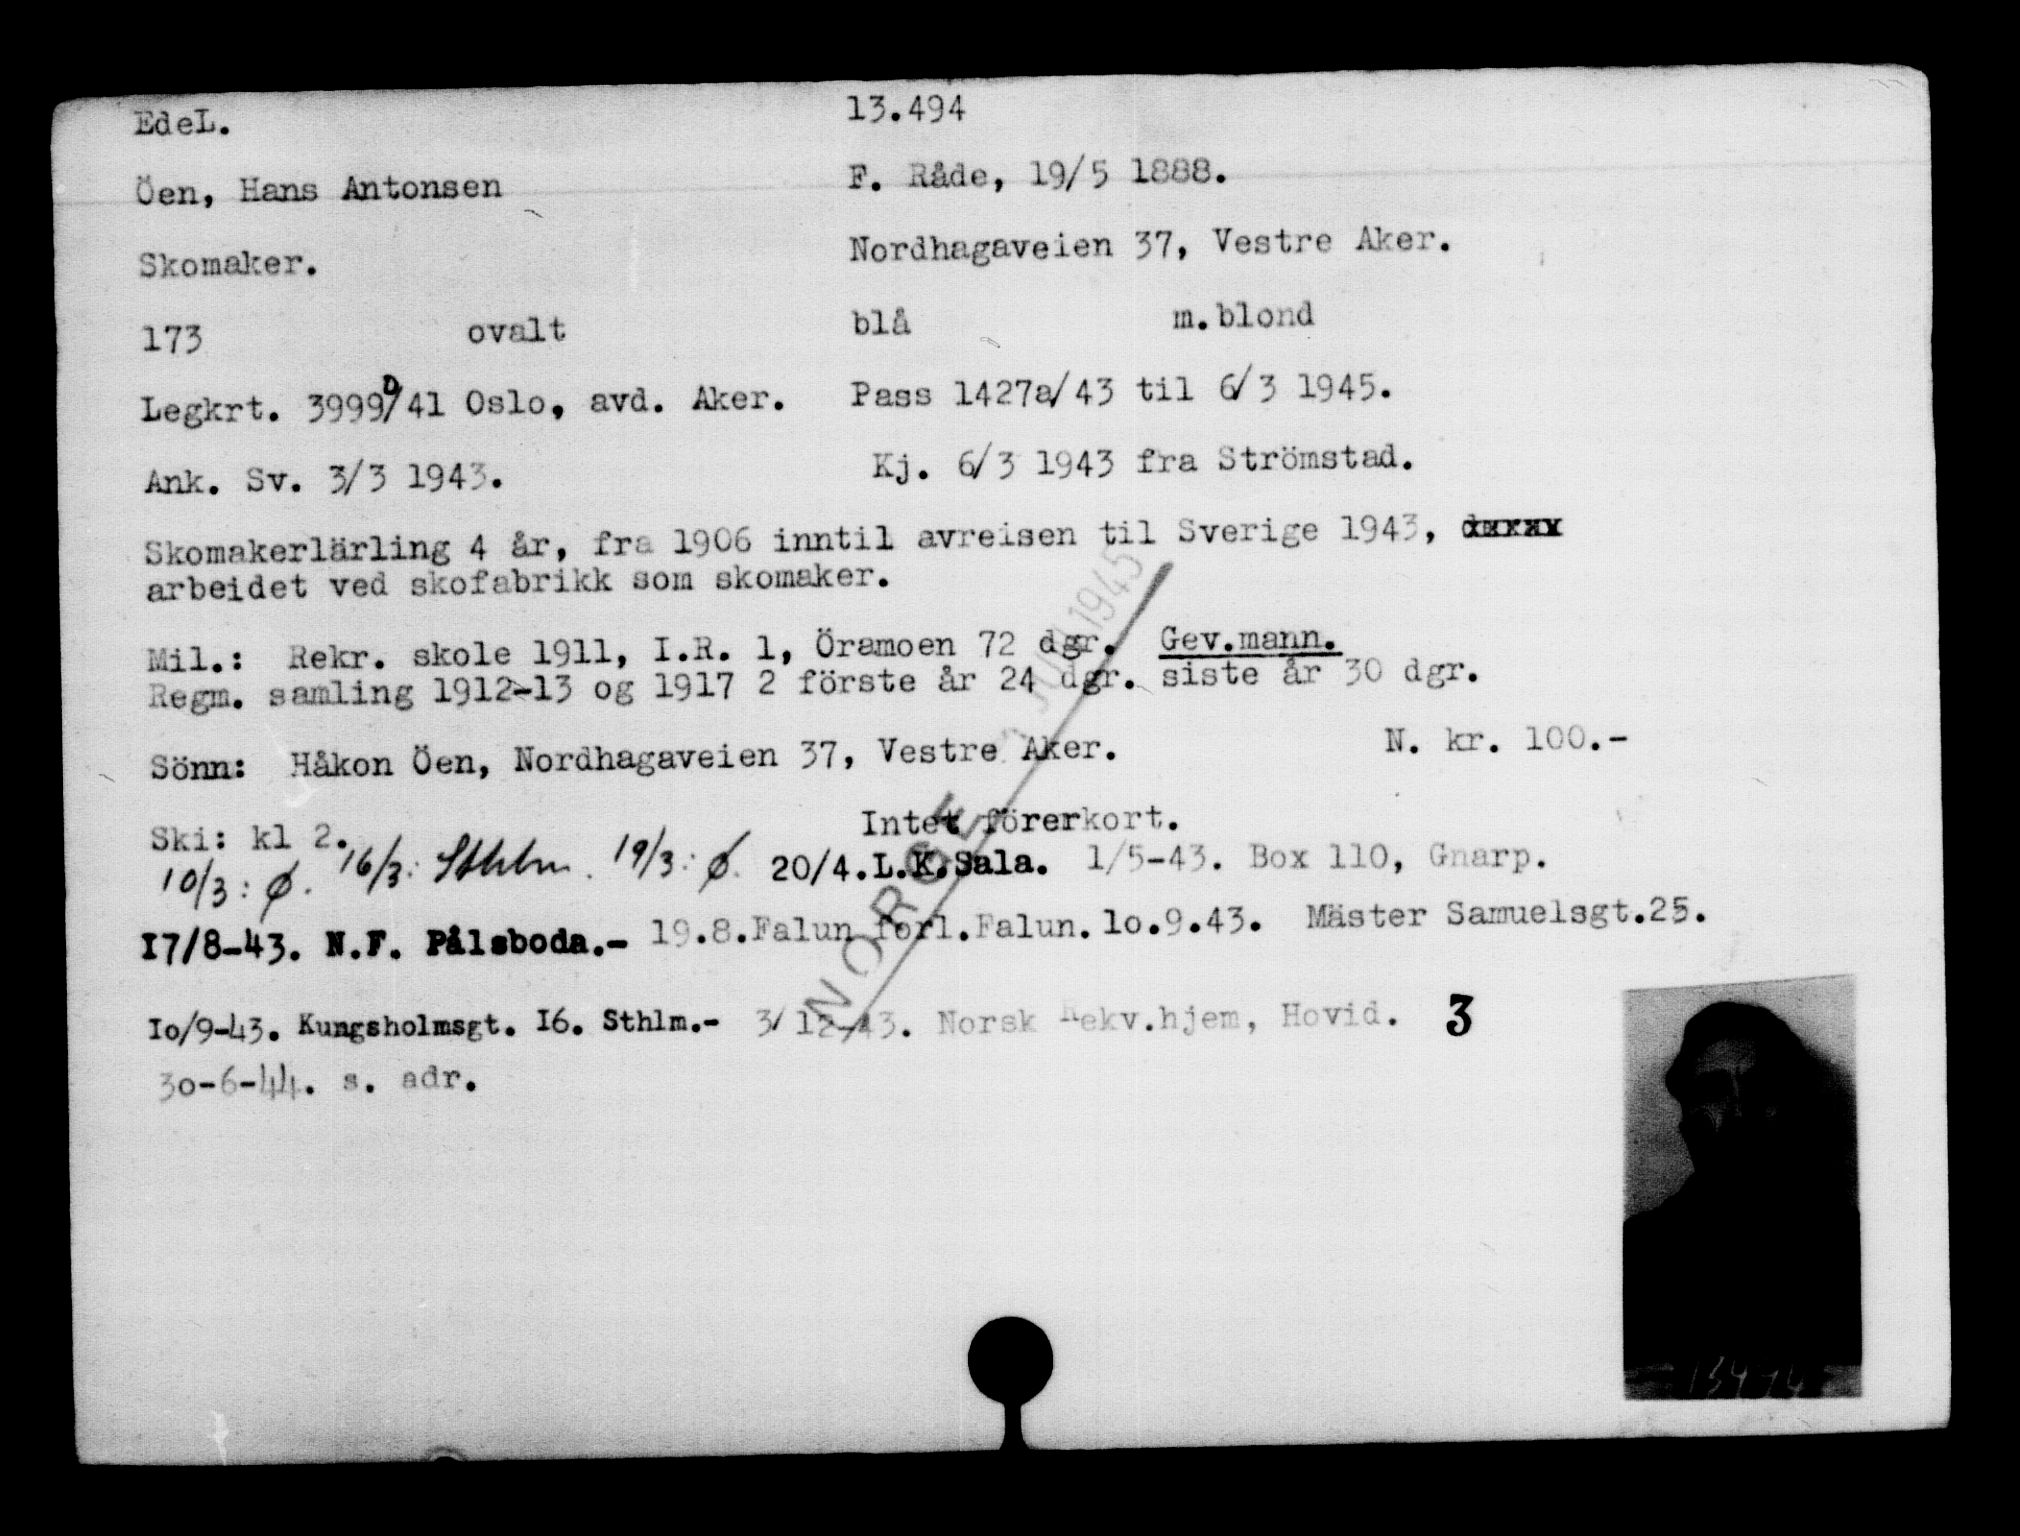 EdeL. 13.494
Öen, Hans Antonsen F. Råde, 19/5 1888.
Skomaker. Nordhagaveien 37, Vestre Aker.
173 ovalt blå m.blond
Legkrt. 3999D/41 Oslo, avd. Aker. Pass 1427a/43 til 6/3 1945.
Ank. Sv. 3/3 1943. Kj. 6/3 1943 fra Strömstad.
Skomakerlärling 4 år, fra 1906 inntil avreisen til Sverige 1943,
arbeidet ved skofabrikk som skomaker.
Mil.: Rekr. skole 1911, I.R. 1, Öramoen 72 dgr. Gev.mann.
Regm. samling 1912-13 og 1917 2 förste år 24 dgr. siste år 30 dgr.
Sönn: Håkon Öen, Nordhagaveien 37, Vestre Aker. N. kr. 100.-
Ski: kl 2. Intet förerkort.
10/3: Ø. 16/3: Sthlm. 19/3: Ø. 20/4.L.K.Sala. 1/5-43. Box 110, Gnarp.
17/8-43. N.F. Pålsboda.- 19.8.Falun forl.Falun. 1o.9.43. Mäster Samuelsgt.25.
Io/9-43. Kungsholmsgt. I6. Sthlm.- 3/12-43. Norsk Rekv.hjem, Hovid. 3
3o-6-44. s. adr.
NORGE 1945